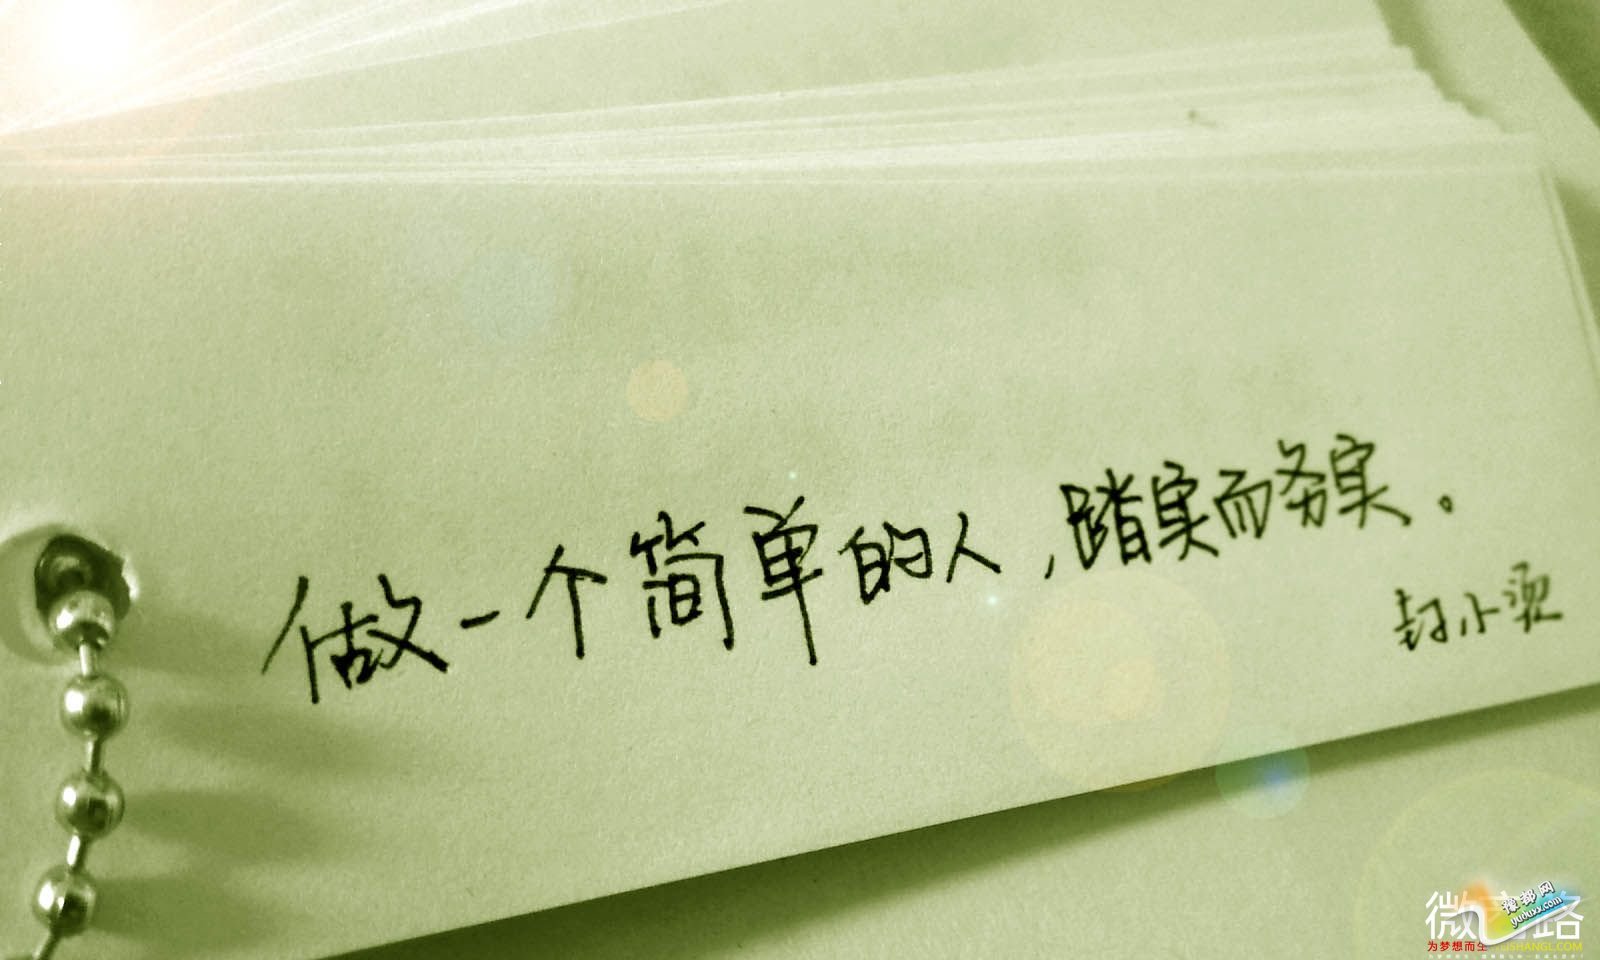 做一个简单的人，踏实而务实。
封小烫
豫都网
yuduxx.com
为梦想而生